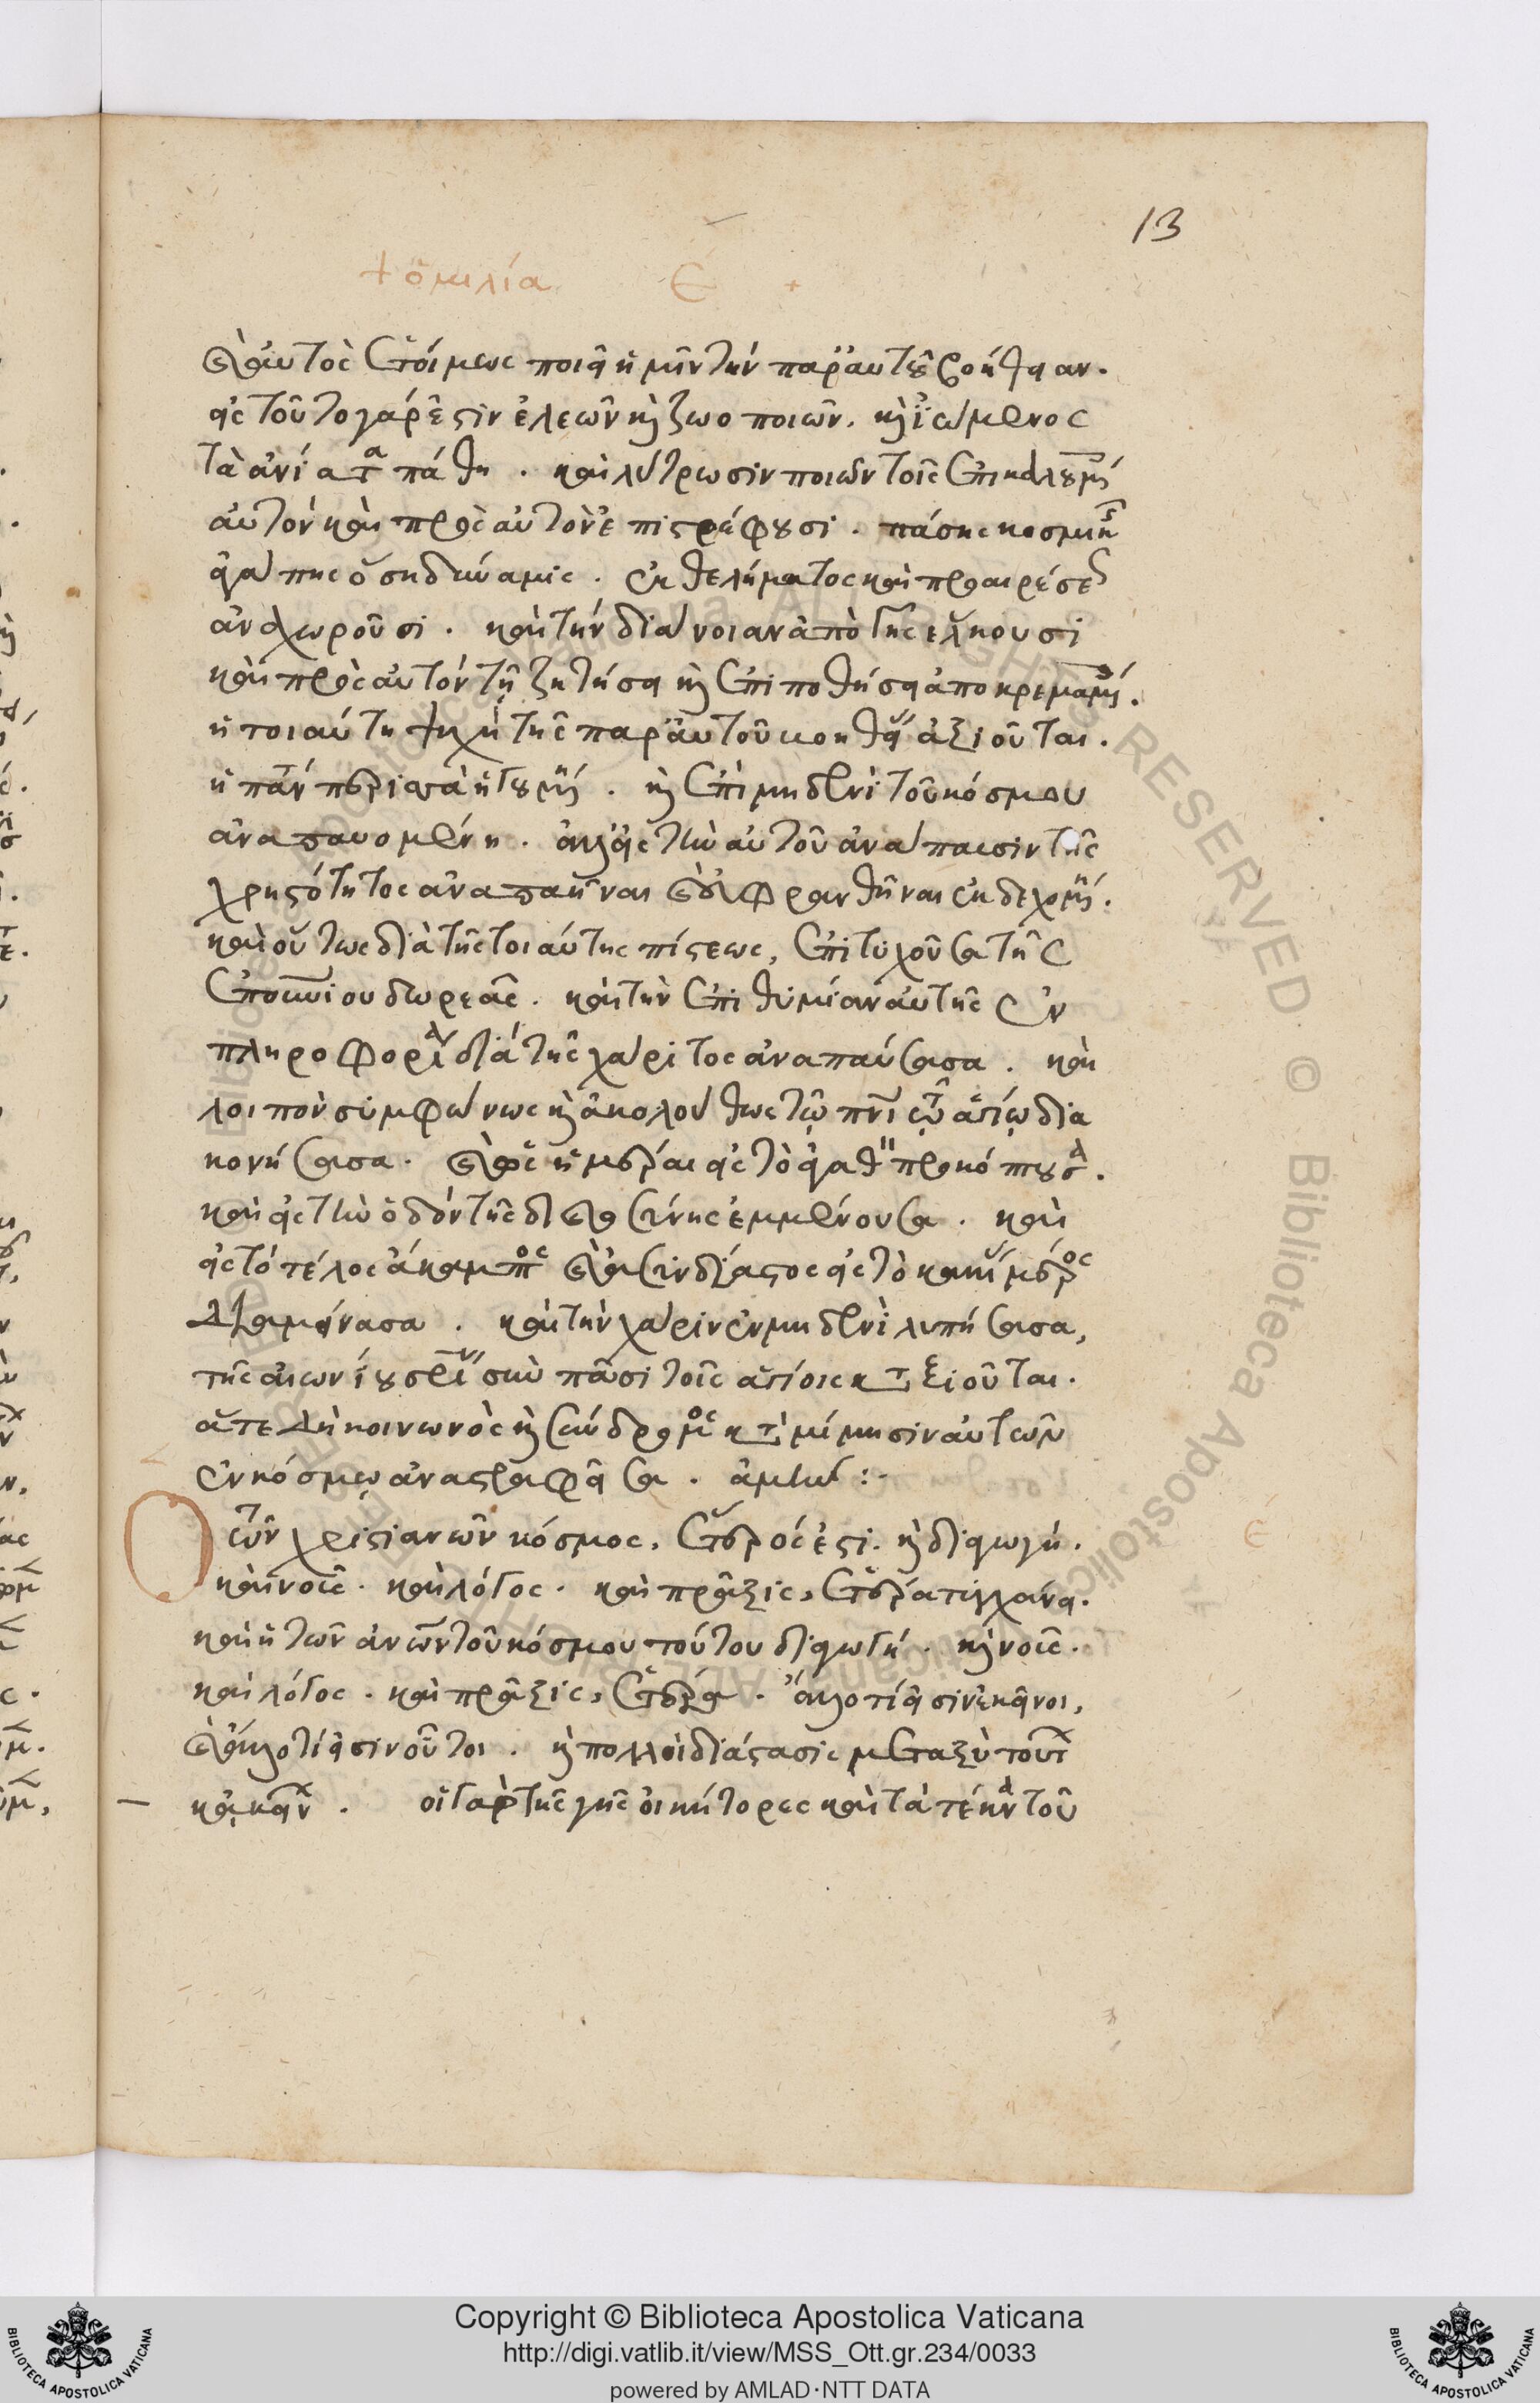 13
+ ὁμιλία Ε +
καὶ αὐτὸς ἑτοίμως ποιεῖ ἡμῖν τὴν παρ' αὐτοῦ βοήθειαν.
εἰς τοῦτο γάρ ἐστιν ἐλεῶν καὶ ζωοποιῶν. καὶ ἰώμενος
τὰ ἀνίατα πάθη. καὶ λύτρωσιν ποιῶν τοῖς ἐπικαλουμένοις
αὐτὸν καὶ πρὸς αὐτὸν ἐπιστρέφουσι. πάσης κοσμικῆς
ἀγάπης ὅση δύναμις. ἐκ θελήματος καὶ προαιρέσεως
ἀναχωροῦσι. καὶ τὴν διάνοιαν ἀπὸ γῆς ἕλκουσι
καὶ πρὸς αὐτὸν τῇ ζητήσει καὶ ἐπιποθήσει ἀποκρεμαμένοις.
ἡ τοιαύτη ψυχὴ τῆς παρ' αὐτοῦ βοηθείας ἀξιοῦται.
ἡ πάντα περιττὰ ἡγουμένη. καὶ ἐπὶ μηδενὶ τοῦ κόσμου
ἀναπαυομένη. ἀλλ' εἰς τὴν αὐτοῦ ἀνάπαυσιν τῆς
χρηστότητος ἀναπαῆναι καὶ εὐφρανθῆναι ἐκδεχομένη.
καὶ οὕτως διὰ τῆς τοιαύτης πίστεως, ἐπιτυχοῦσα τῆς
ἐπουρανίου δωρεᾶς. καὶ τὴν ἐπιθυμίαν αὐτῆς ἐν
πληροφορίᾳ διὰ τῆς χάριτος ἀναπαύσασα. καὶ
λοιπὸν συμφώνως καὶ ἀκολούθως τῷ πνι τῷ ἁγίῳ δια
κονήσασα. καὶ ἐφ' ἡμέραι εἰς τὸ ἀγαθὸν προκόπτουσα.
καὶ εἰς τὴν ὁδὸν τῆς δικαιοσύνης ἐμμένουσα. καὶ
εἰς τὸ τέλος ἄκαμπτος καὶ ἀσυνδίαστος εἰς τὸ κακίας μέρος
διαμείνασα. καὶ τὴν χάριν ἐν μηδενὶ λυπήσασα,
τῆς αἰωνίου σρίας σὺν πᾶσι τοῖς ἁγίοις καταξιοῦται.
ἅτε δὴ κοινωνὸς καὶ σύνδρομος κατὰ μίμησιν αὐτῶν
ἐν κόσμῳ ἀναστραφεῖσα. ἀμήν :-
Ὁ τῶν χριστιανῶν κόσμος, ἕτερός ἐστι. καὶ διαγωγή.
καὶ νοῦς. καὶ λόγος. καὶ πρᾶξις, ἑτέρα τυγχάνει.
καὶ ἡ τῶν ἀνων τοῦ κόσμου τούτου διαγωγή. καὶ νοῦς.
καὶ λόγος. καὶ πρᾶξις, ἑτέρα. ἄλλο τί εἰσιν ἐκεῖνοι,
καὶ ἄλλο τί εἰσιν οὗτοι. καὶ πολλοὶ διάστασις μεταξὺ τούτων
κἀκείνων. οἱ γὰρ τῆς γῆς οἰκήτορες καὶ τὰ τέκνα τοῦ
Ε
Copyright © Biblioteca Apostolica Vaticana
http://digi.vatlib.it/view/MSS_Ott.gr.234/0033
powered by AMLAD·NTT DATA
BIBLIOTECA APOSTOLICA VATICANA
BIBLIOTECA APOSTOLICA VATICANA